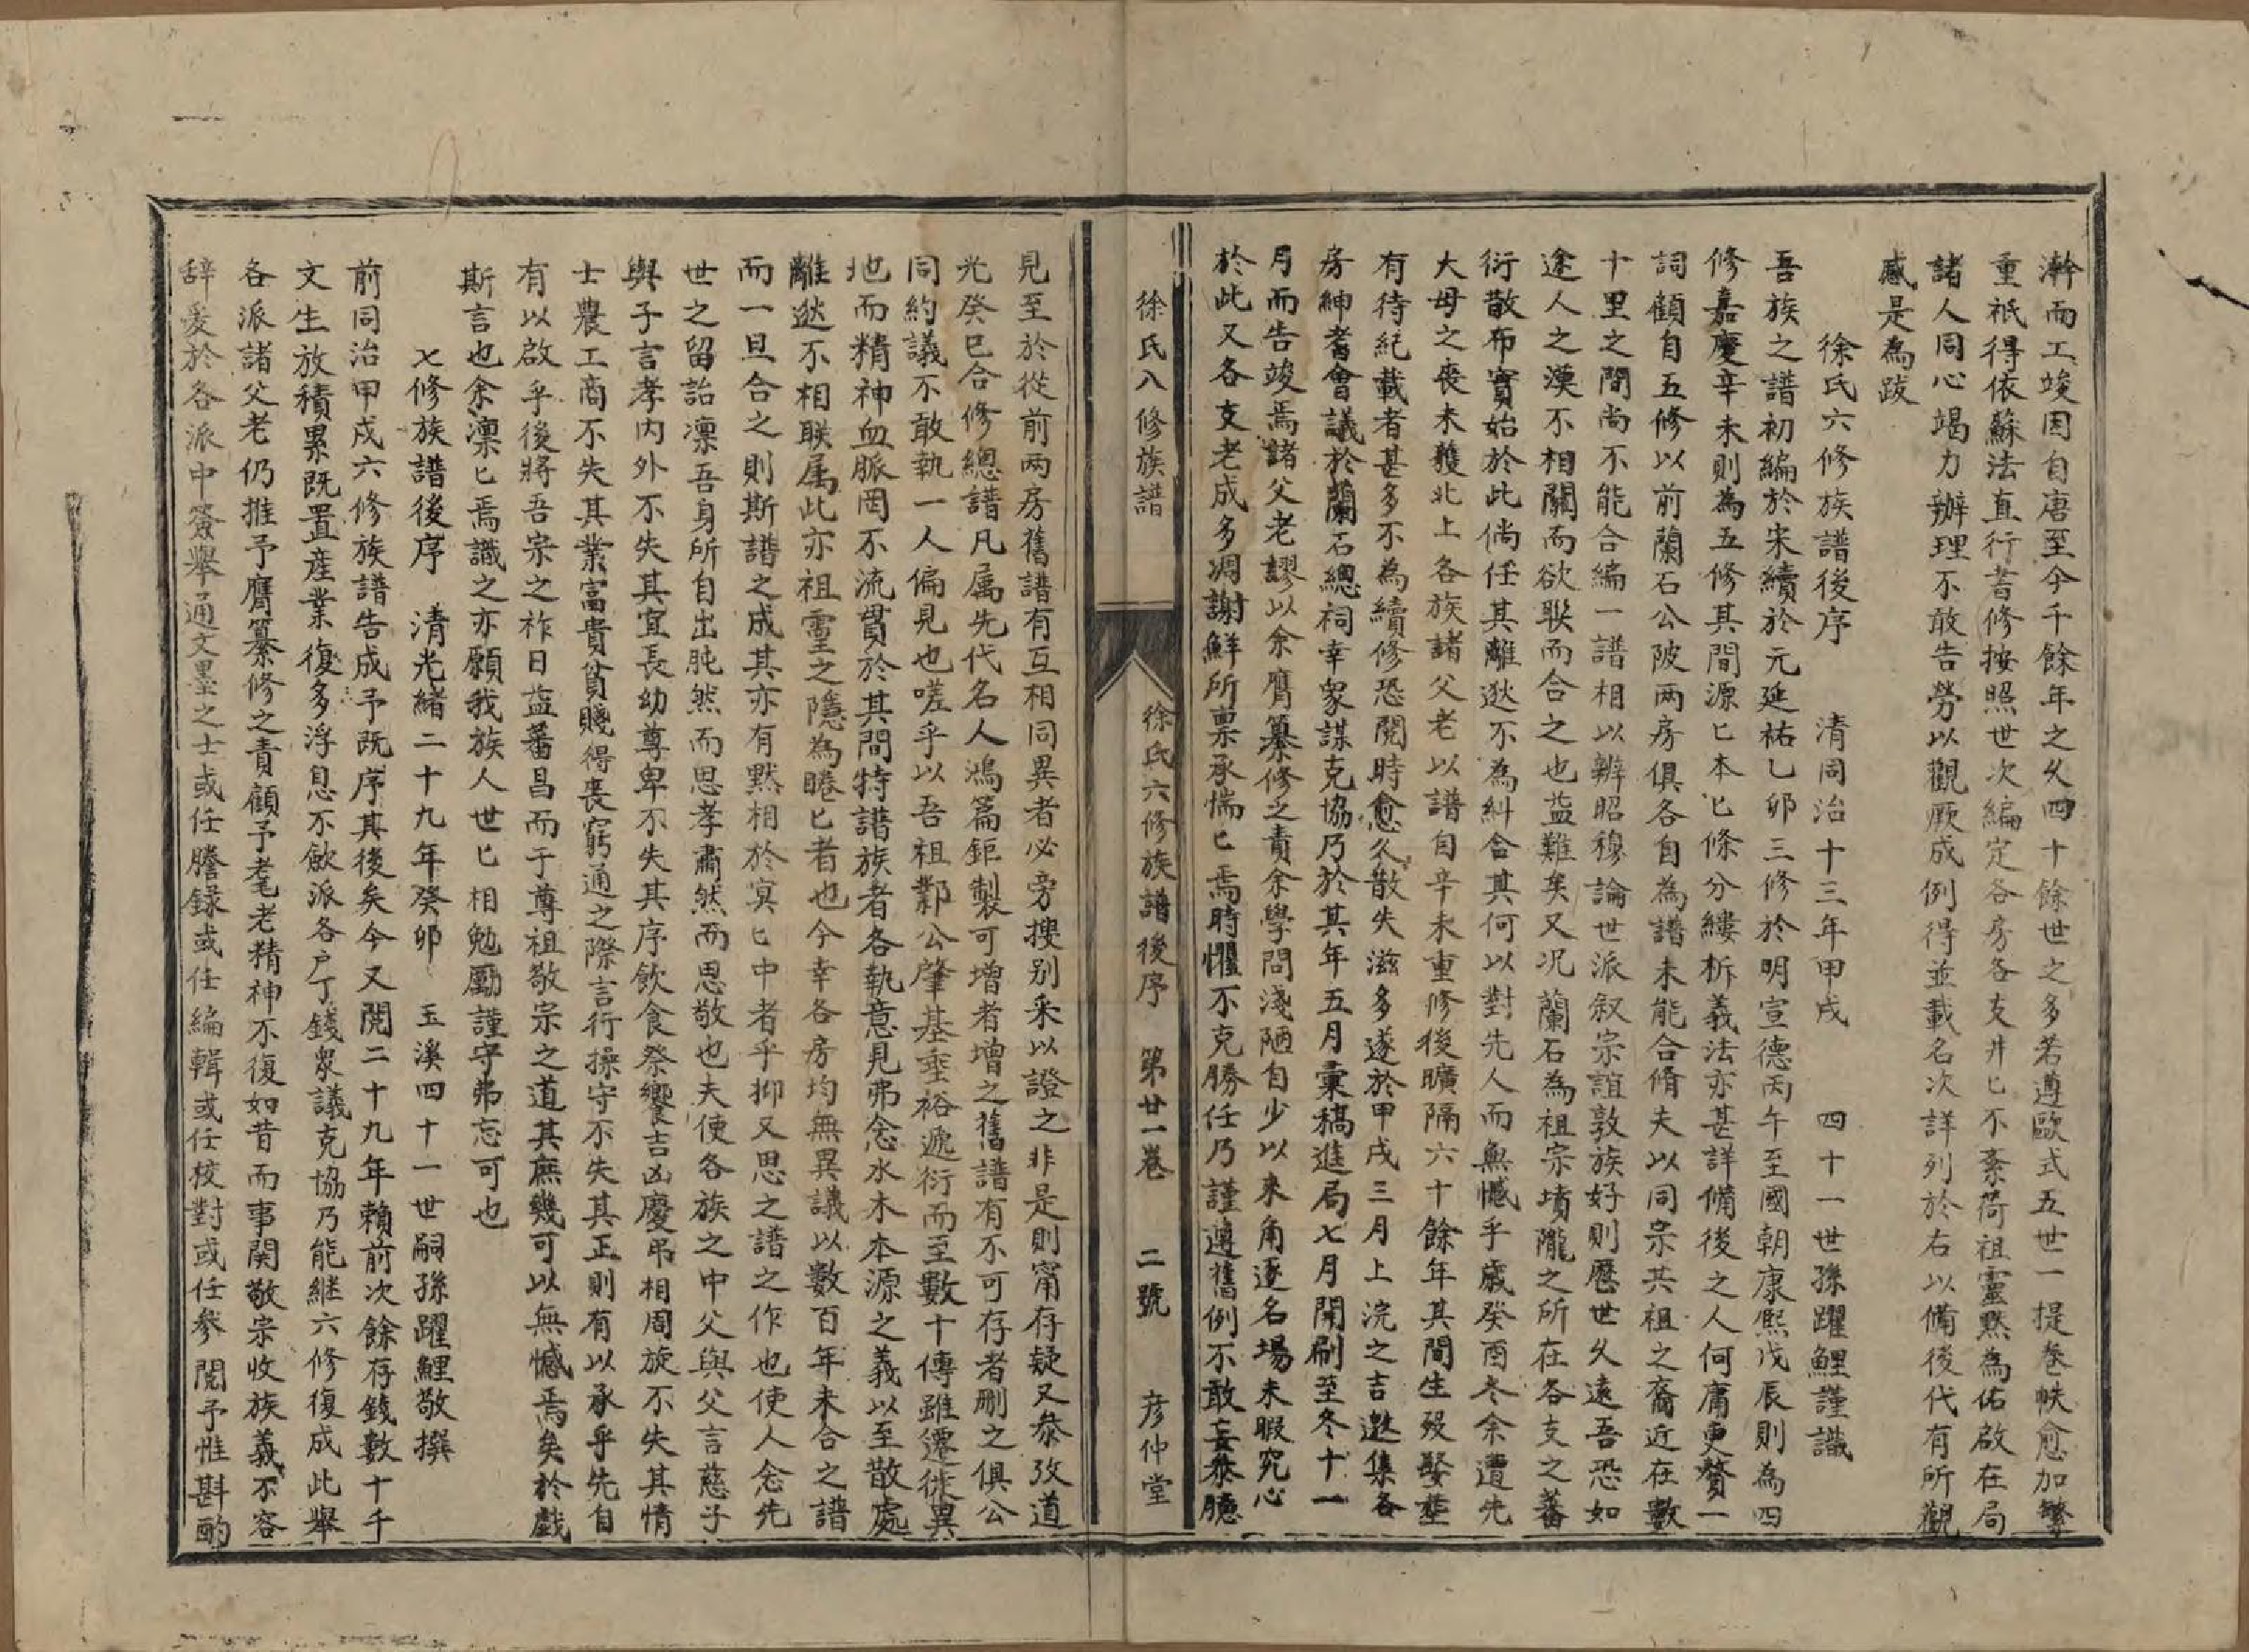 瀚而工竣因自唐至今千餘年之久四十餘世之多若遵歐式五世一提卷帙愈加繁
重祇得依蘇法直行書修按照世次編定各房各支井匕不紊荷祖靈黙為佑啟在局
諸人同心竭力辦理不敢告勞以觀厥成例得並載名次詳列於右以備後代有所觀
感是為跋
徐氏六修族譜後序 清同治十三年甲戌 四十一世孫躍鯉謹識
吾族之譜初編於宋續於元延祐乙卯三修於明宣德丙午至國朝康熙戊辰則為四
修嘉慶辛未則為五修其間源匕本匕條分縷析義法亦甚詳備後之人何庸更贅一
詞顧自五修以前蘭石公陂两房俱各自為譜未能合脩夫以同宗共祖之裔近在數
十里之間尚不能合編一譜相以辨昭穆論世派叙宗誼敦族好則歷世久遠吾恐如
途人之漠不相關而欲聯而合之也益難矣又况蘭石為祖宗墳隴之所在各支之蕃
衍散布實始於此倘任其離逖不為糾合其何以對先人而無憾乎歲癸酉冬余遭先
大母之喪未獲北上各族諸父老以譜自辛未重修後曠隔六十餘年其間生殁娶塟
有待紀載者甚多不為續修恐閱時愈久散失滋多遂於甲戌三月上浣之吉邀集各
房紳耆會議於蘭石總祠幸衆謀克協乃於其年五月彙稿進局七月開刷至冬十一
月而告竣焉諸父老謬以余膺纂修之責余學問淺陋自少以來角逐名場未暇究心
於此又各支老成多凋謝鮮所禀承惴匕焉時懼不克勝任乃謹遵舊例不敢妄叅臆
徐氏八修族譜 徐氏六修族譜後序 第廿一卷 二號 彦仲堂
見至於從前两房舊譜有互相同異者必旁搜别采以證之非是則甯存疑又叅攷道
光癸巳合修總譜凡属先代名人鴻篇鉅製可增者增之舊譜有不可存者删之俱公
同約議不敢執一人偏見也嗟乎以吾祖鄴公肇基垂裕遞衍而至數十傳雖遷徙異
地而精神血脈罔不流貫於其間特譜族者各執意見弗念水木本源之義以至散處
離逖不相聯属此亦祖靈之隱為睠匕者也今幸各房均無異議以數百年未合之譜
而一旦合之則斯譜之成其亦有黙相於冥匕中者乎抑又思之譜之作也使人念先
世之留詒凛吾身所自出肫然而思孝肅然而思敬也夫使各族之中父與父言慈子
與子言孝内外不失其宜長幼尊卑不失其序飲食祭饗吉凶慶弔相周旋不失其情
士農工商不失其業富貴貧賤得喪窮通之際言行操守不失其正則有以承乎先自
有以啟乎後將吾宗之祚日益蕃昌而于尊祖敬宗之道其庶幾可以無憾焉矣於戯
斯言也余凛匕焉識之亦願我族人世匕相勉勵謹守弗忘可也
七修族譜後序 清光緒二十九年癸卯 玉溪四十一世嗣孫躍鯉敬撰
前同治甲戌六修族譜告成予既序其後矣今又閱二十九年賴前次餘存錢數十千
文生放積累既置産業復多浮息不飲派各户丁錢衆議克協乃能継六修復成此舉
各派諸父老仍推予膺纂修之責顧予耄老精神不復如昔而事関敬宗收族義不容
辞爰於各派中簽舉通文墨之士或任謄録或任編輯或任校對或任參閲予惟斟酌